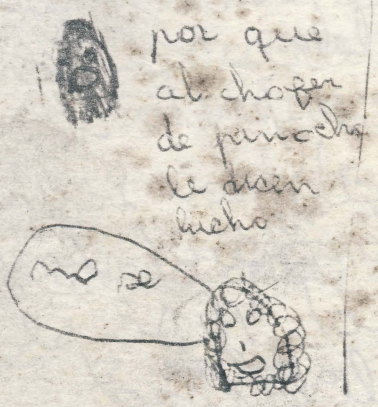 por que
al chofer
de pinocho
le dicen
lucho
no se